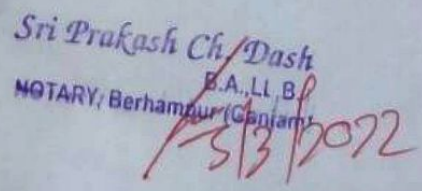 Sri Prakash Ch. Dash
B.A.,LL.B
NOTARY, Berhampur (Ganjam)
5/3/2022